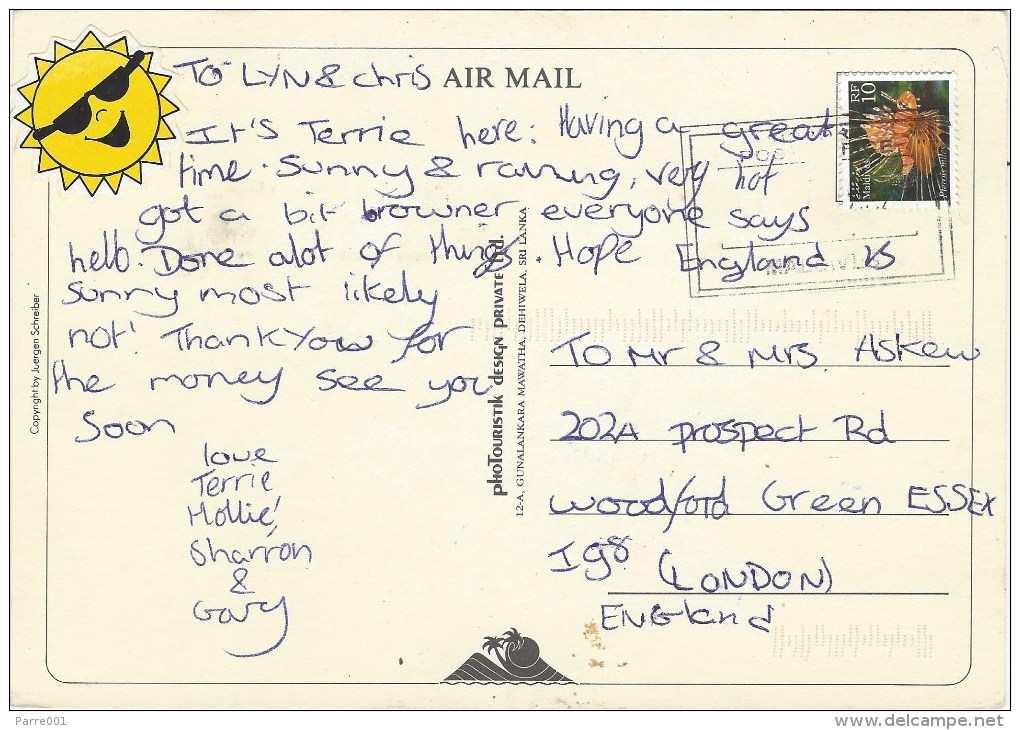 TO LYN & chris AIR MAIL
It's Terrie here: Having a great
time. Sunny & raining, very hot
got a bit browner everyone says
hello. Done alot of things. Hope England is
sunny most likely
not! Thankyou for
the money see you
soon
love
Terrie
Hollie,
Sharron
&
Gary
RF 10
Maldives
MALDIVES
To Mr & Mrs. Askew
202A prospect Rd
woodford Green ESSEX
Ig8 (LONDON)
ENGland
Copyright by Juergen Schreiber
phoTouristik design private ltd.
12-A, GUNALANKARA MAWATHA, DEHIWELA, SRI LANKA
Parre001
www.delcampe.net